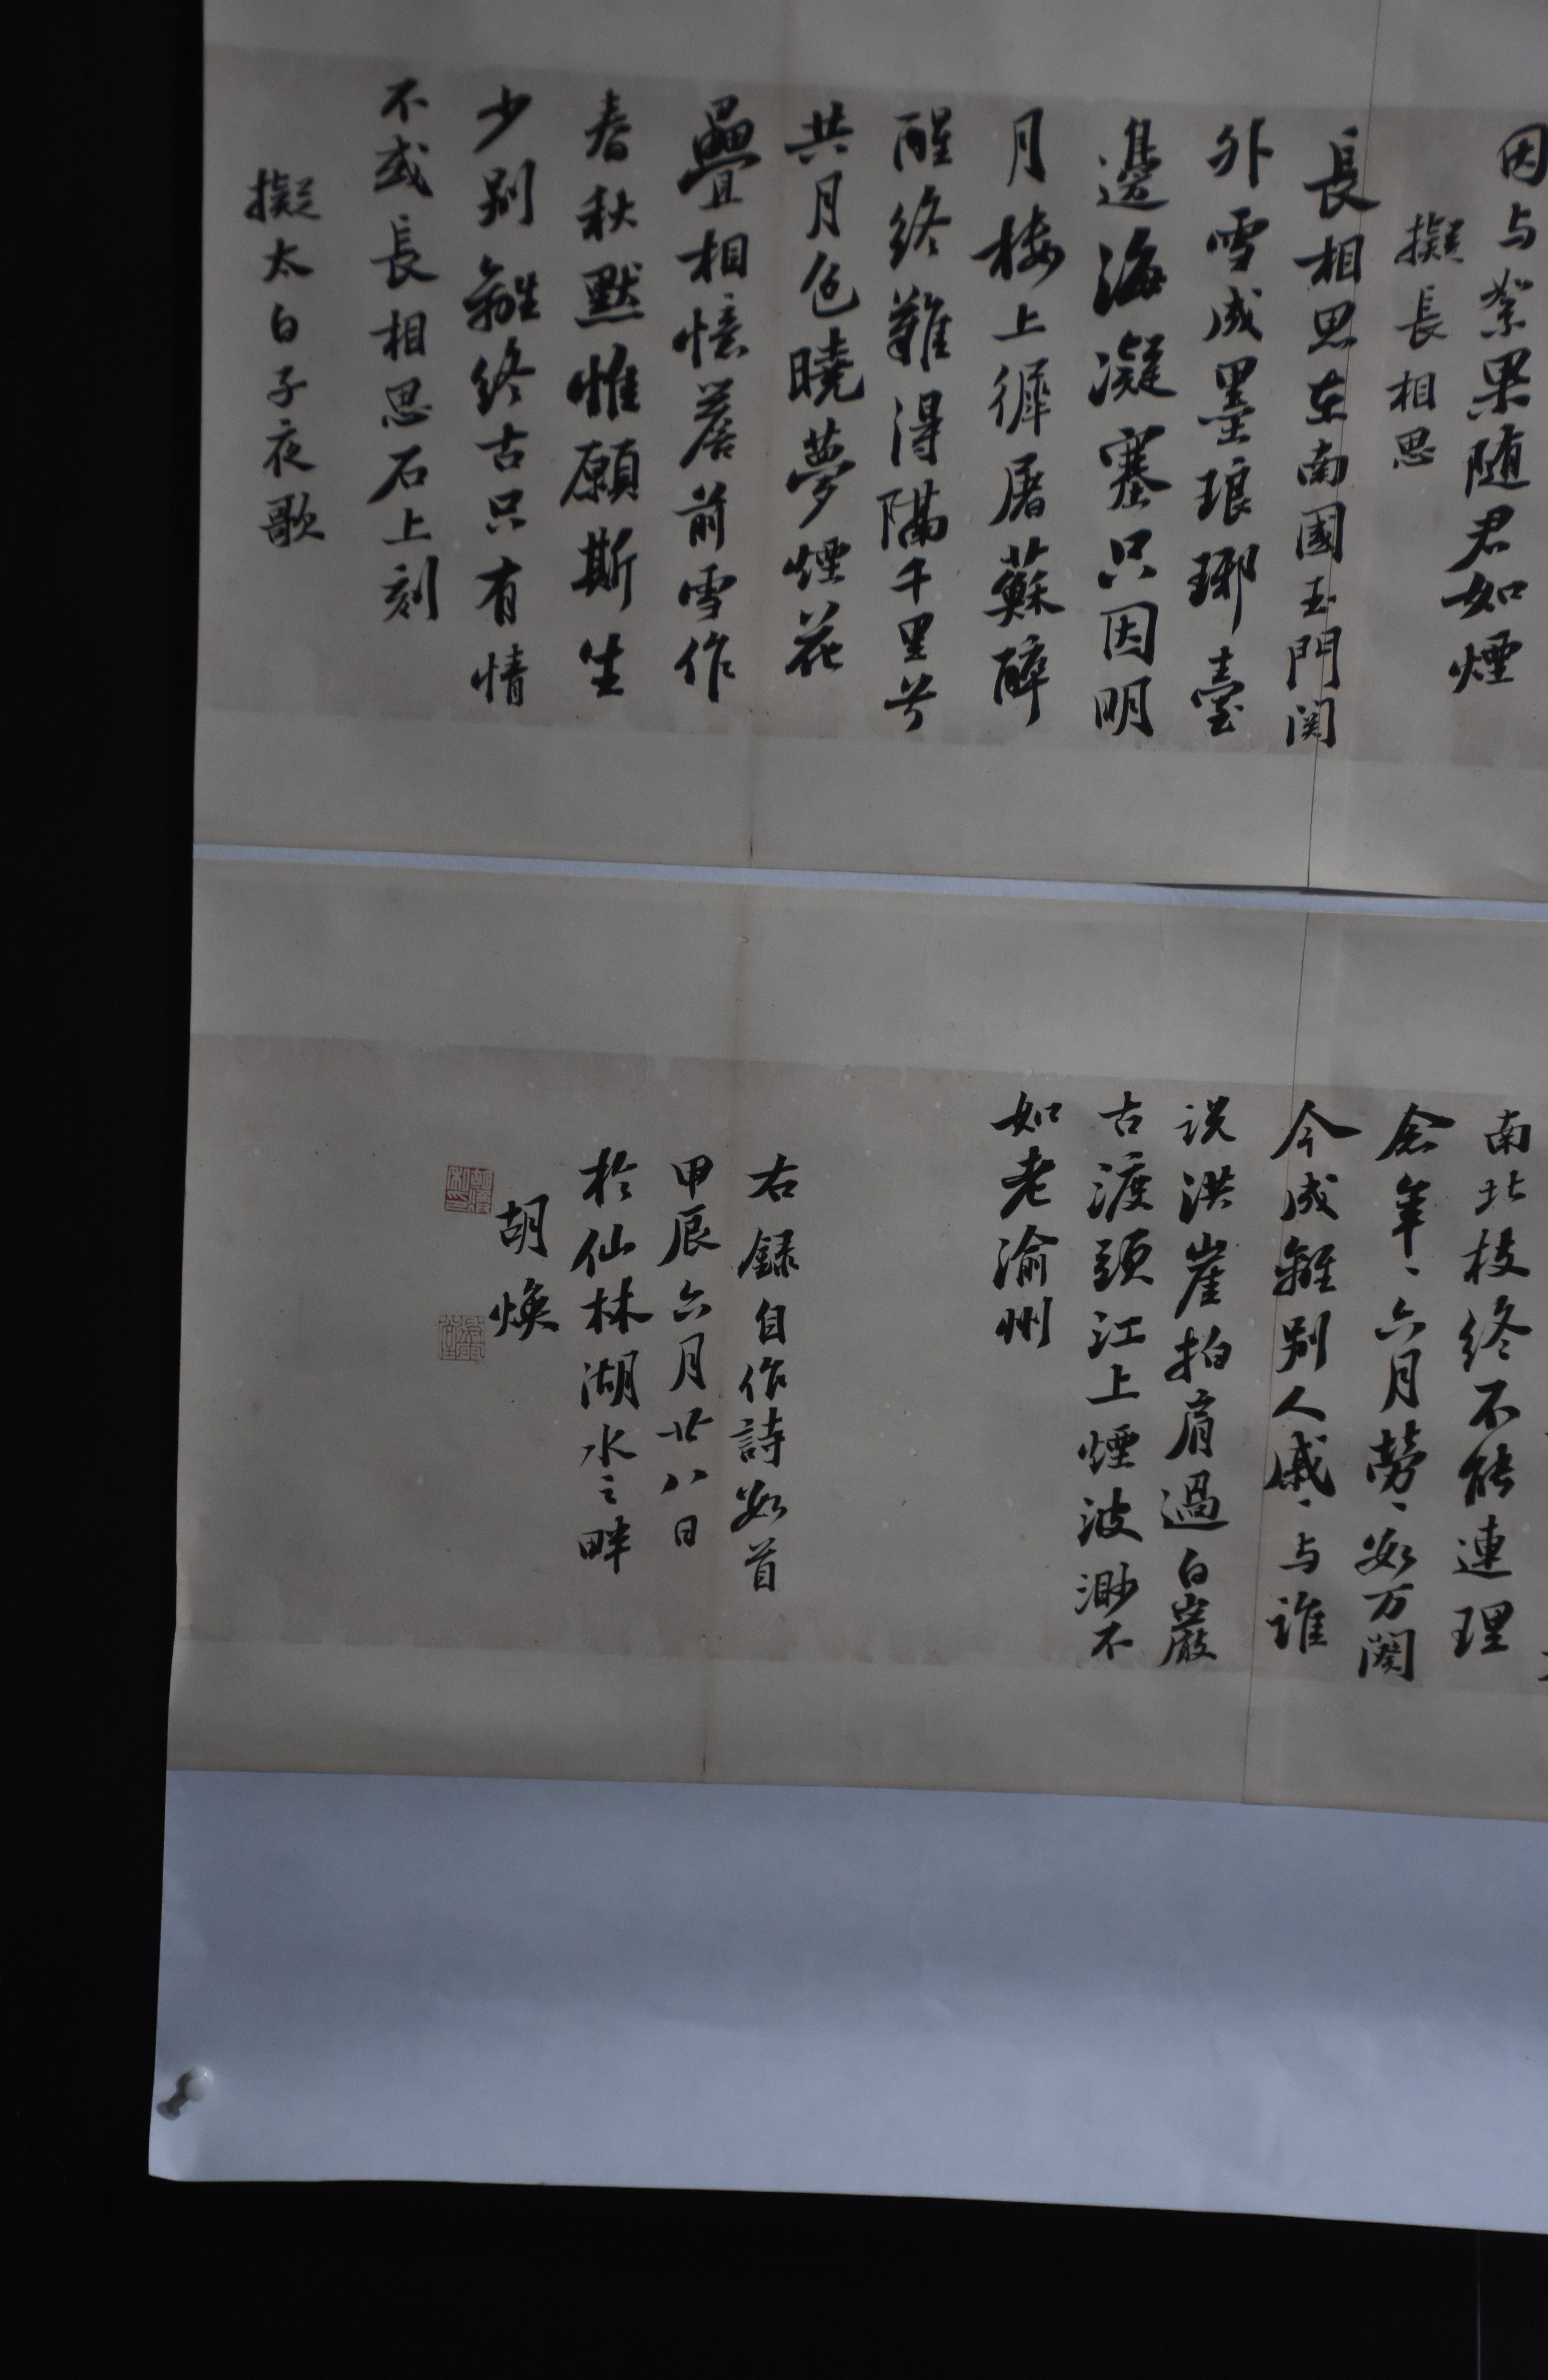 因与絮果随君如煙
擬長相思
長相思在南國玉門関
外雪成墨琅琊臺
邊海凝塞只因明
月楼上徘屠蘇醉
醒終難得隔千里兮
共月色曉夢煙花
疊相憶簷前雪作
春秋默惟願斯生
少別離終古只有情
不或長相思石上刻
擬太白子夜歌
南北枝終不能連理
念年、六月勞、如万関
今成離別人戚、与誰
説洪崖拍肩過白巖
古渡頭江上煙波渺不
如老渝州
右録自作詩如首
甲辰六月廿八日
於仙林湖水之畔
胡煥